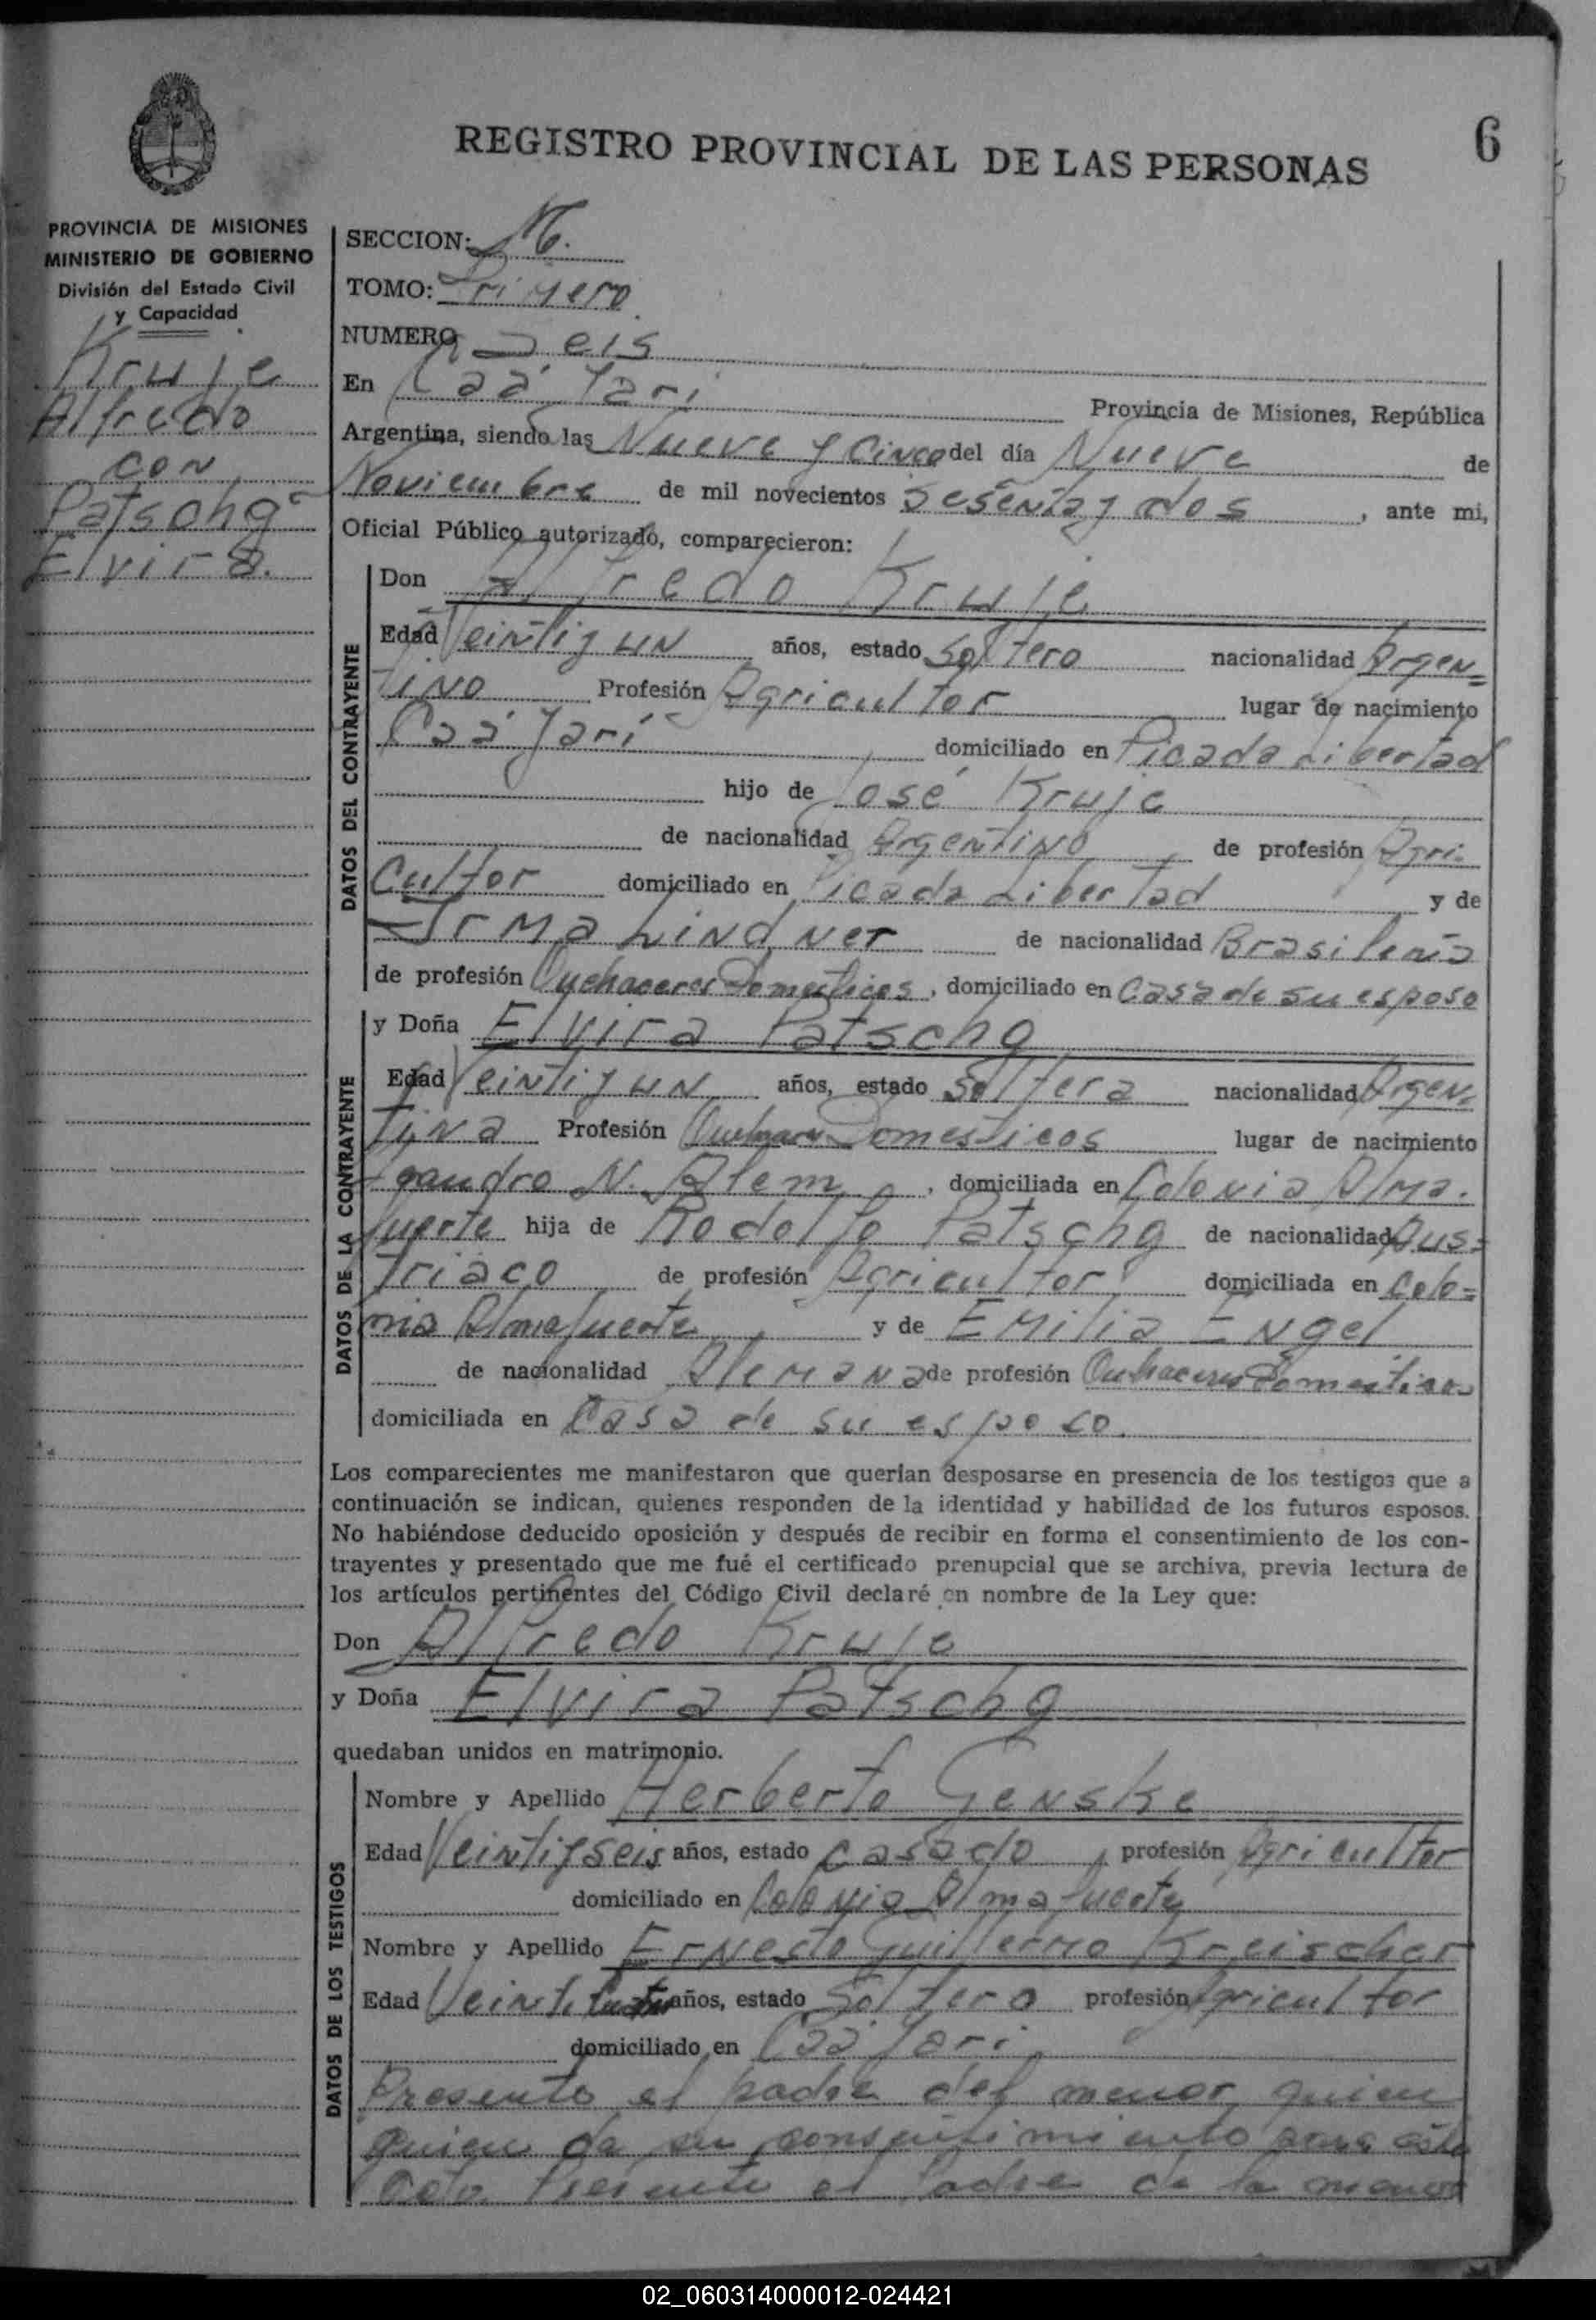 REGISTRO PROVINCIAL DE LAS PERSONAS
6
PROVINCIA DE MISIONES
MINISTERIO DE GOBIERNO
División del Estado Civil
y Capacidad
Kruje
Alfredo
con
Patschg
Elvira.
SECCION: M.
TOMO: Primero
NUMERO Seis
En Caá Yarí Provincia de Misiones, República
Argentina, siendo las Nueve y Cinco del día Nueve de
Noviembre de mil novecientos sesenta y dos, ante mi,
Oficial Público autorizado, comparecieron:
DATOS DEL CONTRAYENTE
Don Alfredo Kruje
Edad Veintiyun años, estado soltero nacionalidad Argen=
tino Profesión Agricultor lugar de nacimiento
Caá Yarí domiciliado en Picada Libertad
hijo de José Kruje
de nacionalidad Argentino de profesión Agri-
cultor domiciliado en Picada Libertad y de
Irma Lindner de nacionalidad Brasileña
de profesión Quehaceres Domesticos, domiciliado en Casa de su esposo
DATOS DE LA CONTRAYENTE
y Doña Elvira Patschg
Edad Veintiyun años, estado Soltera nacionalidad Argen=
tina Profesión Quehaceres Domesticos lugar de nacimiento
Leandro N. Alem, domiciliada en Colonia Alma.
fuerte hija de Rodolfo Patschg de nacionalidad Aus=
triaco de profesión Agricultor domiciliada en Colo=
nia Almafuerte y de Emilia Engel
de nacionalidad Alemana de profesión Quehaceres Domesticos
domiciliada en Casa de su esposo.
Los comparecientes me manifestaron que querían desposarse en presencia de los testigos que a
continuación se indican, quienes responden de la identidad y habilidad de los futuros esposos.
No habiéndose deducido oposición y después de recibir en forma el consentimiento de los con-
trayentes y presentado que me fué el certificado prenupcial que se archiva, previa lectura de
los artículos pertinentes del Código Civil declaré en nombre de la Ley que:
Don Alfredo Kruje
y Doña Elvira Patschg
quedaban unidos en matrimonio.
DATOS DE LOS TESTIGOS
Nombre y Apellido Herberto Genske
Edad Veintiyseis años, estado casado, profesión Agricultor
domiciliado en Colonia Almafuerte
Nombre y Apellido Ernesto Guillermo Kreischer
Edad Veinti años, estado Soltero profesión Agricultor
domiciliado en Caá Yarí
Presente el padre del menor quien
quien da su consentimiento para este
acto. Presente el Padre de la menor
02_060314000012-024421